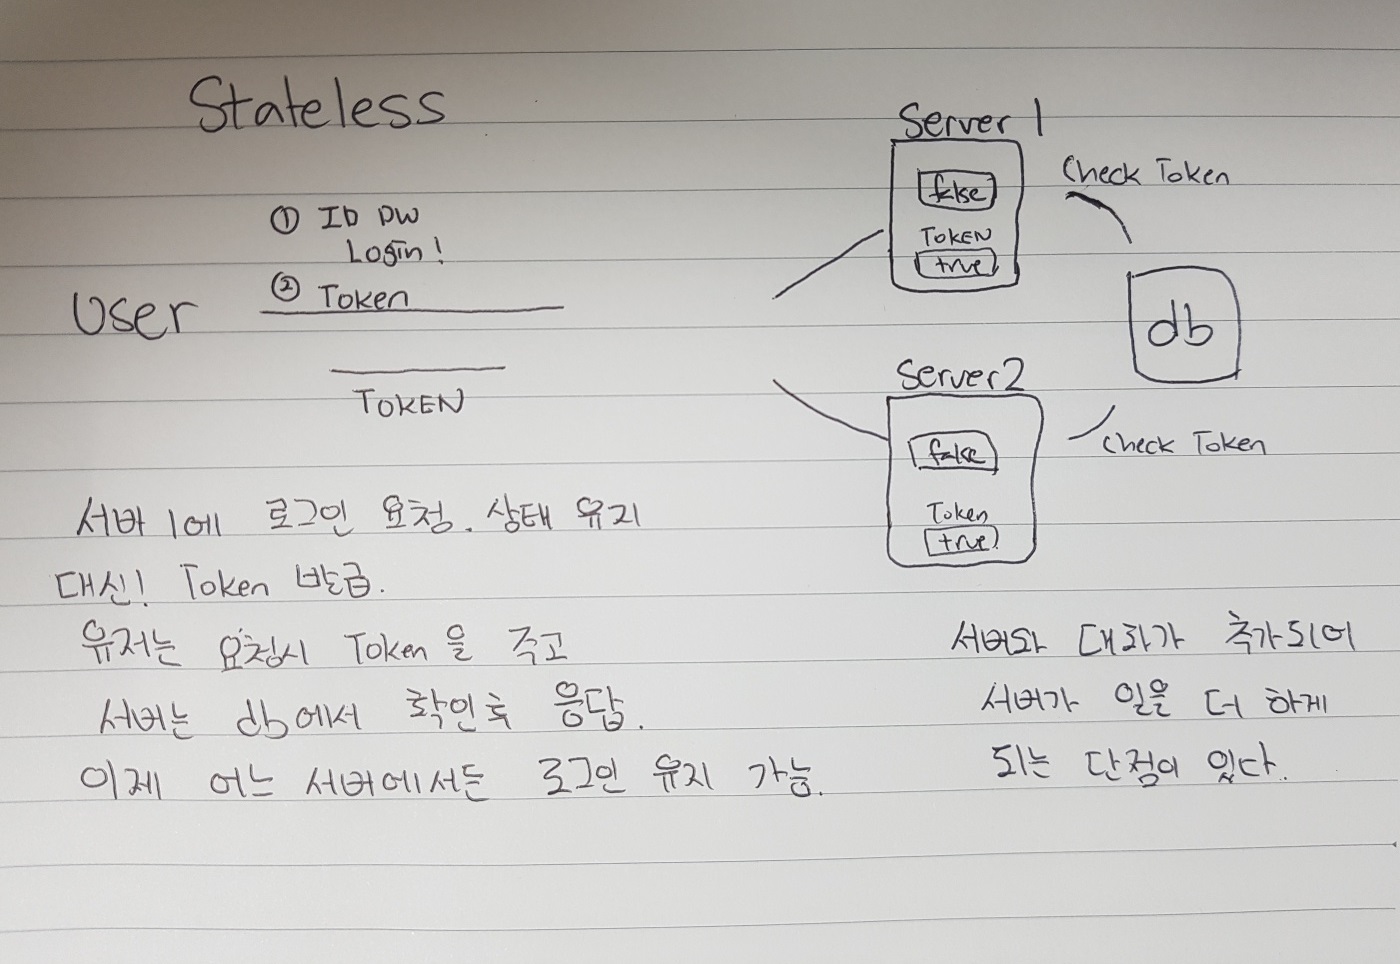 Stateless
① ID PW
Login!
② Token
User
TOKEN
Server 1
false
TOKEN
true
Check Token
db
Server2
false
Token
true
Check Token
서버 1에 로그인 요청. 상태 유지
대신! Token 발급.
유저는 요청시 Token을 주고
서버는 db에서 확인후 응답.
이제 어느 서버에서든 로그인 유지 가능.
서버와 대화가 추가되어
서버가 일을 더 하게
되는 단점이 있다.